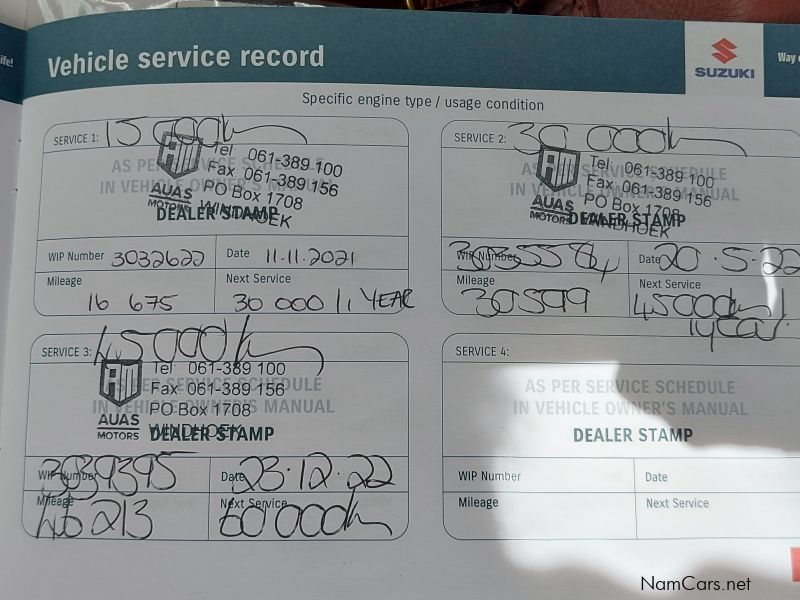 ife!
Vehicle service record
SUZUKI
Way
Specific engine type / usage condition
SERVICE 1: 15 000km
AS PER SERVICE SCHEDULE
IN VEHICLE OWNER'S MANUAL
DEALER STAMP
AUAS
MOTORS
Tel 061-389 100
Fax 061-389 156
PO Box 1708
WINDHOEK
WIP Number 3032622
Date 11.11.2021
Mileage
16 675
Next Service
30 000 / 1 YEAR
SERVICE 2: 30 000km
AS PER SERVICE SCHEDULE
IN VEHICLE OWNER'S MANUAL
DEALER STAMP
AUAS
MOTORS
Tel 061-389 100
Fax 061-389 156
PO Box 1708
WINDHOEK
WIP Number
Date 20.5.22
Mileage
30599
Next Service
45000km /
1year.
SERVICE 3: 45000km
AS PER SERVICE SCHEDULE
IN VEHICLE OWNER'S MANUAL
DEALER STAMP
AUAS
MOTORS
Tel 061-389 100
Fax 061-389 156
PO Box 1708
WINDHOEK
WIP Number 3039395
Date 23.12.22
Mileage
46213
Next Service
60000km
SERVICE 4:
AS PER SERVICE SCHEDULE
IN VEHICLE OWNER'S MANUAL
DEALER STAMP
WIP Number
Date
Mileage
Next Service
NamCars.net